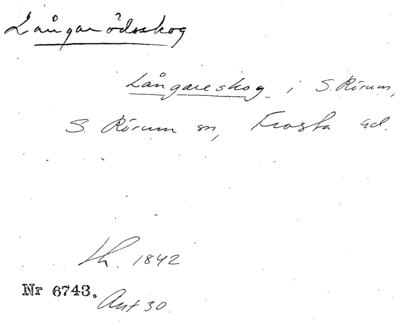 Långarödsskog
Långareskog i S. Rörum,
S. Rörum sn, Frosta hd.
Lh. 1842
Nr 6743.
Ant 30